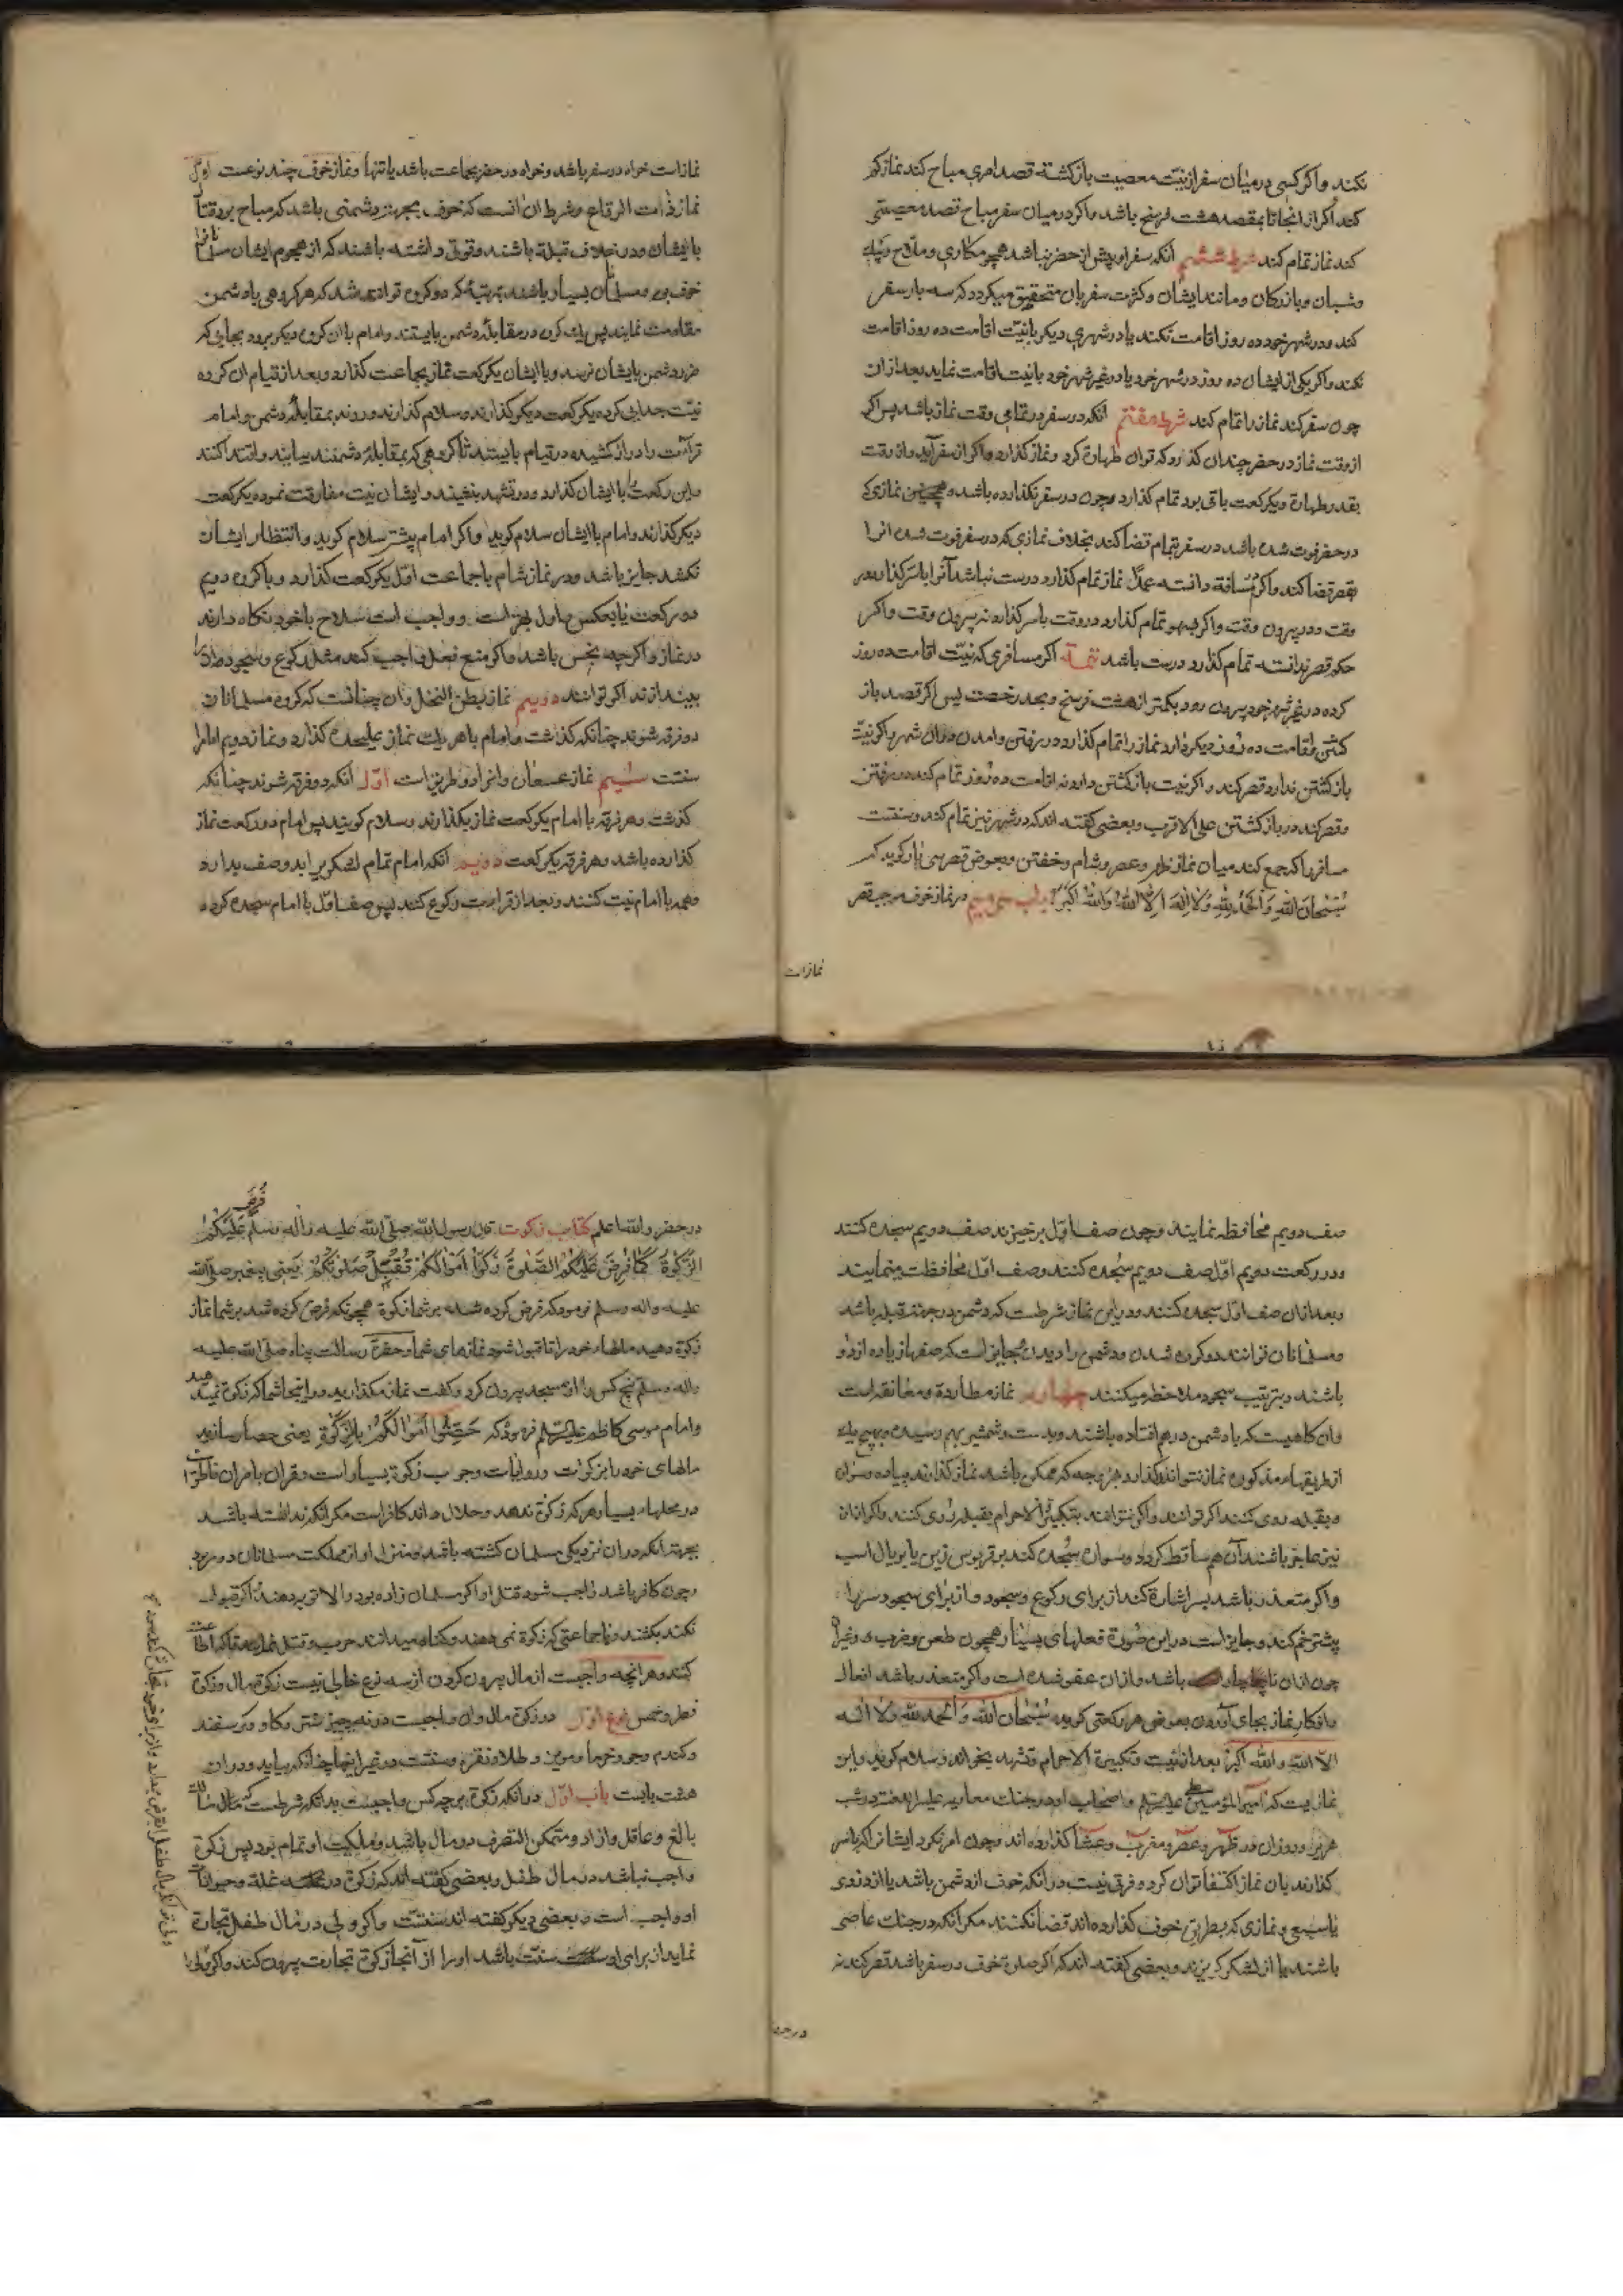 نکند و اکر کسی در میان سفر از نیت معصیت باز کشته قصد امری مباح کند نماز کم
کند اکر از انجا تا بمقصد هشت فرسخ باشد و اکر در میان سفر مباح قصد معصیتی
کند نماز تمام کند شرط ششم انکه سفر او پیش از حضر نباشد همچو مکاری و ملاح و پیک
و شبان و بازرکان و مانند ایشان و کثرت سفر بان متحقق میکردد که سه بار سفر
کند و در شهر خود ده روز اقامت نکند یا در شهری دیکر بانیت اقامت ده روز اقامت
نکند و اکر یکی از ایشان ده روز در شهر خود یا در غیر شهر خود بانیت اقامت نماید بعد از ان
چون سفر کند نماز را تمام کند شرط هفتم انکه در سفر در تمامی وقت نماز باشد پس اکر
از وقت نماز در حضر چندان کذارد که توان طهارة کرد و نماز کذارد و اکر از سفر آید و از وقت
بقدر طهارة و یکرکعت باقی بود تمام کذارد و چون در سفر نکذارده باشد و همچنین نمازی که
در حضر فوت شده باشد در سفر تمام قضا کند بخلاف نمازی که در سفر فوت شده انرا
بقصر قضا کند و اکر مسافة دانسته عمداً نماز تمام کذارد درست نباشد آنرا باسر کذارد در
وقت و در بیرون وقت و اکر بسهو تمام کذارد در وقت باسر کذارد نه بیرون وقت و اکر
حکم قصر ندانسته تمام کذارد درست باشد تتمة اکر مسافری که نیت اقامت ده روز
کرده در غیر شهر خود بیرون رود بکمتر از هشت فرسخ و بحد رخصت پس اکر قصد باز
کشتن و اقامت ده روز دیکر دارد نماز را تمام کذارد در رفتن و امدن و دران شهر و اکر نیت
باز کشتن ندارد قصر کند و اکر نیت باز کشتن دارد نه اقامت ده روز تمام کند در رفتن
و قصر کند در باز کشتن علی الاقرب و بعضی کفته اند که در شهر نیز تمام کند و سنتست
مسافر را که جمع کند میان نماز ظهر و عصر و شام و خفتن و بعوض قصر سی بار کوید که
سُبْحَانَ اللهِ وَالْحَمْدُ لِلّهِ وَلَا اِلَهَ اِلَّا اللهُ وَاللهُ اَکْبَرُ باب سی و سیم در نماز خوف موجب قصر
نماز است
نماز است خواه در سفر باشد و خواه در حضر بجماعت باشد یا تنها و نماز خوف چند نوعست اول
نماز ذات الرقاع و شرط ان انست که خوف بجهة دشمنی باشد که مباح بود قتال
با ایشان و در خلاف قبلة باشند و قوتی داشته باشند که از هجوم ایشان مسلمانانرا
خوف بود و مسلمانان بسیار باشند بمرتبۀ که دو کروه توانند شد که هر کروهی با دشمن
مقاومت نمایند پس یک کروه در مقابلۀ دشمن بایستند و امام با ان کروه دیکر برود بجایی که
ضرر دشمن بایشان نرسد و با ایشان یکرکعت نماز بجماعت کذارد و بعد از قیام ان کروه
نیت جدایی کرده یکرکعت دیکر کذارند و سلام کذارند و روند بمقابلۀ دشمن و امام
قرآءت را دراز کشیده در قیام بایستد تا کروهی که بمقابلۀ دشمنند بیایند و اقتدا کنند
و این رکعت با ایشان کذارد و در تشهد بنشیند و ایشان نیت مفارقت نموده یکرکعت
دیکر کذارند و امام با ایشان سلام کوید و اکر امام پیشتر سلام کوید و انتظار ایشان
نکشد جایز باشد و در نماز شام با جماعت اول یکرکعت کذارد و با کروه دویم
دو رکعت یا بعکس و اول بهتر است و واجب است سلاح با خود نکاه دارند
در نماز و اکرچه نجس باشد و اکر منع فعل واجب کند مثل رکوع و سجود انرا
بیندازند اکر توانند دویم نماز بطن النخل و ان چنانست که کروه مسلمانان
دو فرقه شوند چنانکه کذشت و امام با هر یک نماز علیحده کذارد و نماز دویم امام را
سنت سیم نماز عسفان و انرا دو طریق است اول انکه دو فرقه شوند چنانکه
کذشت و هر فرقه با امام یکرکعت نماز بکذارند و سلام کویند پس امام دو رکعت نماز
کذارده باشد و هر فرقه یکرکعت دویم انکه امام تمام لشکر برابد و صف بدارد
و همه با امام نیت کنند و بعد از قراءت رکوع کنند پس صف اول با امام سجده کرده
صف دویم محافظه نمایند و چون صف اول برخیزند صف دویم سجده کنند
و در رکعت دویم اول صف دویم سجده کنند و صف اول محافظت مینمایند
و بعد ازان صف اول سجده کنند و در این نماز شرطست که دشمن در جهة قبله باشد
و مسلمانان توانند دو کروه شدن و دشمن را دیدن و جایز است که صفها زیاده از دو
باشند و بترتیب سجود ملاحظه میکنند چهارم نماز مطاردة و معانقه است
و ان کاهیست که با دشمن در هم افتاده باشند و بدست و شمشیر بهم رسیده و بهیچ یک
از طریقهاء مذکوره نماز نتوانند کذارد هر وجه که ممکن باشد نماز کذارند پیاده و سواره
و بقبله روی کنند اکر توانند و اکر نتوانند بتکبیرة الاحرام بقبله روی کنند و اکر ازان
نیز عاجز باشند آن هم ساقط کردد و سواره سجده کند بر قربوس زین یا بر یال اسب
و اکر متعذر باشد بسر اشارة کند از برای رکوع و سجود و از برای سجود سر را
پیشتر خم کند و جایز است در این صورة فعلهای بسیار همچون طعن و ضرب و غیر
چون ازان ناچار باشد و ازان عفو شده است و اکر متعذر باشد افعال
و اذکار نماز بجای آوردن بعوض هر رکعتی کوید سُبْحَانَ اللهِ وَالْحَمْدُ لِلّهِ وَلَا اِلَه
اِلّا اللهُ وَاللهُ اَکْبَر بعد از نیت و تکبیرة الاحرام و تشهد بخواند و سلام کوید و این
نمازیست که امیر المؤمنین علی علیه السلم و اصحاب او در جنک معاویه علیه اللعنه در شب
هریر و روز ان در ظهر و عصر و مغرب و عشا کذارده اند و چون امر نکرد ایشانرا که باسر
کذارند بان نماز اکتفا توان کرد و فرقی نیست در انکه خوف از دشمن باشد یا از دزدی
یا سبعی و نمازی که بطریق خوف کذارده اند قضا نکنند مکر انکه در جنک عاصی
باشند یا از لشکر کریزند و بعضی کفته اند که اکر صلوة خوف در سفر باشد قصر کند نه
در حضر
در حضر والله اعلم کتاب زکوت قال رسول الله صلی الله علیه واله وسلم فُرِضَ عَلَیْکُمُ
الزَّکٰوةُ کَمَا فُرِضَ عَلَیْکُمُ الصَّلٰوةُ زَکُّوا اَمْوَالَکُمْ تُقْبَلْ صَلٰوتُکُمْ یعنی پیغمبر صلی الله
علیه واله وسلم فرمود که فرض کرده شده بر شما زکوة همچونکه فرض کرده شد بر شما نماز
زکوة دهید مالهاء خود را تا قبول شود نمازهای شما و حضرة رسالت پناه صلی الله علیه
واله وسلم پنج کس را از مسجد بیرون کرد و کفت نماز مکذارید در اینجا شما که زکوة نمیدهید
و امام موسی کاظم علیه السلم فرمود که حَصِّنُوا اَمْوَالَکُمْ بِالزَّکٰوةِ یعنی حصار سازید
مالهای خود را بزکوات و روایات وجوب زکوة بسیار است و قران بامران ناطق است
در محلهاء بسیار هر که زکوة ندهد و حلال داند کافر است مکر انکه ندانسته باشد
بجهة انکه دران نزدیکی مسلمان کشته باشد و منزل او از مملکت مسلمانان دور بود
و چون کافر باشد واجب شود قتل او اکر مسلمان زاده بود و الا توبه دهند اکر قبول
نکند بکشند و با جماعتی که زکوة نمی دهند و کناه میدانند حرب و قتل نمایند تا که اطاعت
کنند و هر انچه واجبست از مال بیرون کردن از سه نوع خالی نیست زکوة مال و زکوة
فطر و خمس نوع اول در زکوة مال و ان واجبست در نه چیز شتر و کاو و کوسفند
و کندم و جو و خرما و مویز و طلا و نقره و سنتست در غیر اینها چنانکه بیاید و دران
هشت بابست باب اول در انکه زکوة بر چه کس واجبست بدانکه شرطست که مالک مال
بالغ و عاقل و ازاد و متمکن التصرف در مال باشد و ملکیت او تمام بود پس زکوة
واجب نباشد در مال طفل و بعضی کفته اند که زکوة در غله و حیوانات
او واجب است و بعضی دیکر کفته اند سنتست و اکر ولی در مال طفل تجارة
نماید از برای او سنت باشد او را از آنجا زکوة تجارت بیرون کند و اکر ولی را